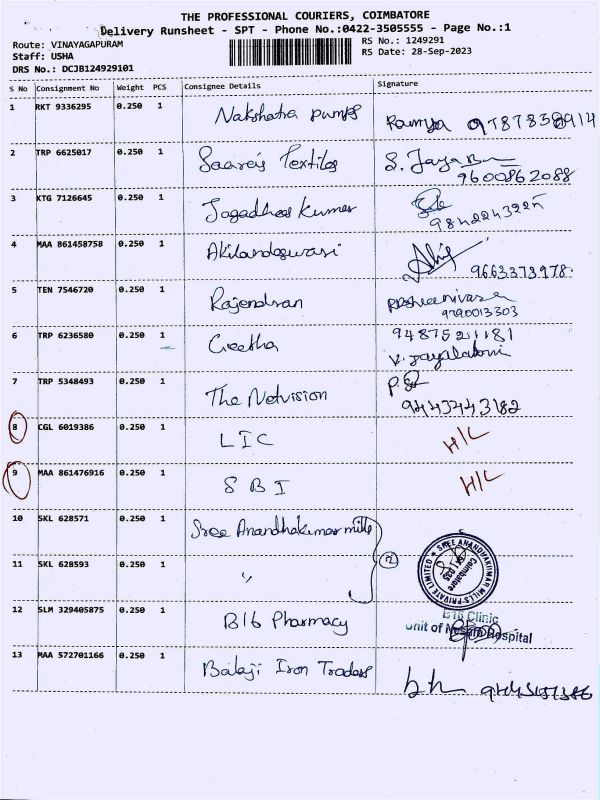 THE PROFESSIONAL COURIERS, COIMBATORE
Delivery Runsheet - SPT - Phone No.:0422-3505555 - Page No.:1
Route: VINAYAGAPURAM
RS No.: 1249291
Staff: USHA
RS Date: 28-Sep-2023
DRS No.: DCJB124929101
S No Consignment No Weight PCS Consignee Details Signature
1 RKT 9336295 0.250 1 Nakshatra pumps Ramya
2 TRP 6625017 0.250 1 Textiles 9600862088
3 KTG 7126645 0.250 1 Kumar
4 MAA 861458758 0.250 1 9663373978
5 TEN 7546720 0.250 1 Rajendran 9790013303
6 TRP 6236580 0.250 1 Geetha
7 TRP 5348493 0.250 1 The Netvision 9443443182
8 CGL 6019386 0.250 1 LIC H/L
9 MAA 861476916 0.250 1 SBI H/L
10 SKL 628571 0.250 1 Sree Anandhakumar mills
11 SKL 628593 0.250 1 "
SREE ANANDHAKUMAR MILLS PRIVATE LIMITED
Coimbatore
12 SLM 329405875 0.250 1 B16 Pharmacy
B16 Clinic
Unit of Hospital
13 MAA 572701166 0.250 1 Balaji Iron Traders